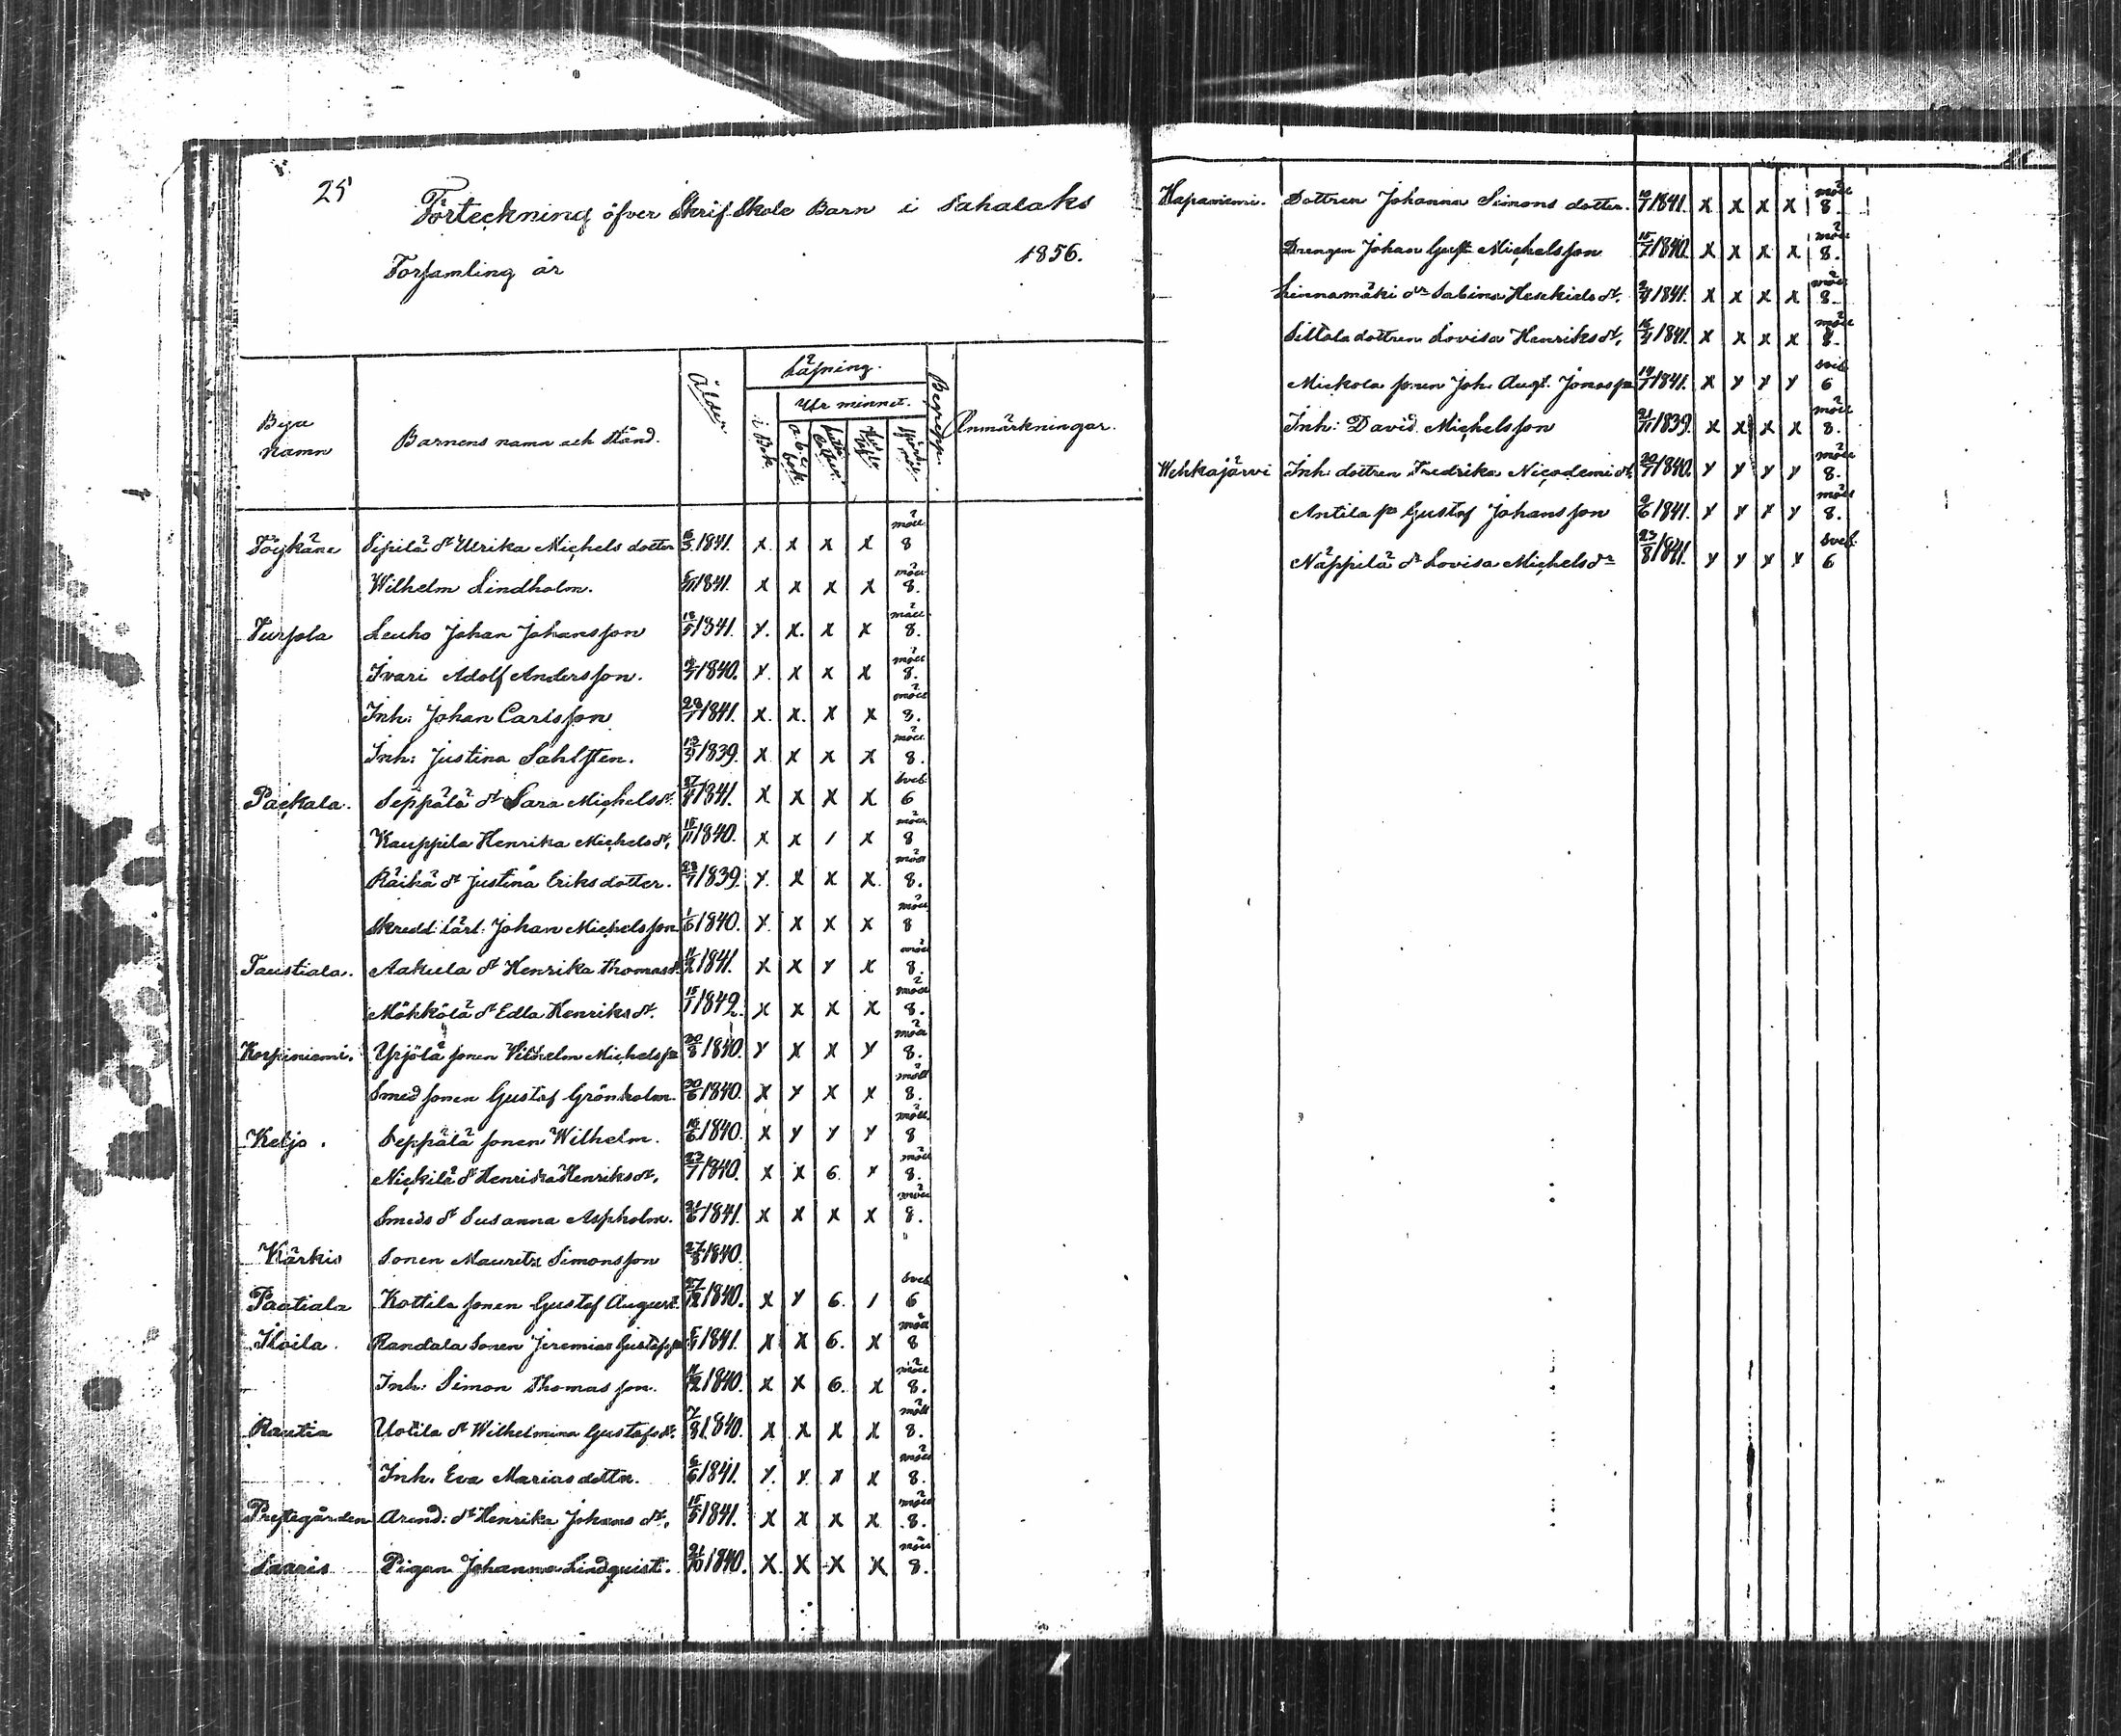 25
Förteckning öfver Skrif-Skole Barn i Sahalaks
Forsamling år 1856.
Bya namn
Barnens namn och stånd.
Ålder
Läsning.
i Bok
Utr minnet.
a.b.c. bok
Begrepp.
Anmärkningar.
Töykäne Sipilä dr Ulrika Michels dotter 1841. x. x x x möll 8
Wilhelm Lindholm. 1841. x x x x möll 8.
Tursola Leuho Johan Johansson 18/5 1841. x. x. x x möll 8.
Ivari Adolf Andersson. 1840. x. x x x möll 8.
Inh: Johan Carlsson 28/1 1841. x. x. x x möll 8.
Inh: Justina Sahlsten. 1839. x x x x möll 8.
Packala. Seppälä dr Sara Michelsdr. 1841. x x x x 6
Kauppila Henrika Michelsdr. 15/11 1840. x x / x möll 8
Räikä dr Justina Eriksdotter. 1839. x. x x x. möll 8.
Skredd: lärl: Johan Michelsson 1/6 1840. x. x x x möll 8
Taustiala. Aakula dr Henrika Thomasd. 1841. x x x x möll 8.
Möhkölä dr Edla Henriksdr. 15/1 1842. x x x x möll 8.
Korpiniemi. Yrjölä sonen Vilhelm Michelss 20/8 1840. x x x x möll 8.
Smed sonen Gustaf Grönholm. 30/6 1840. x x x x möll 8.
Keljo. Seppälä sonen Wilhelm. 16/6 1840. x x x x möll 8
Nickilä dr Henrika Henriksdr. 23/7 1840. x x 6. x möll 8.
Smeds dr Susanna Aspholm. 1841. x x x x möll 8.
Kärkis Sonen Mauritz Simonsson 27/8 1840.
Paatiala Kottila sonen Gustaf August. 27/12 1840. x x 6. / 6
Iloila. Randala Sonen Jeremias Gustafss 1841. x x 6. x möll 8
Inh: Simon Thomasson. 1840. x x 6. x möll 8.
Rautia Uotila dr Wilhelmina Gustafsdr. 1840. x x x x möll 8.
Inh. Eva Mariasdotter. 6/6 1841. x. x. x x möll 8.
Prestegården Arend: dr Henrika Johans dr. 15/5 1841. x x x x möll 8.
Saaris Pigan Johanna Lindquist. 21/10 1840. x. x x x möll 8.
Hapaniemi. Dottren Johanna Simons dotter. 10/7 1841. x x x x möll 8.
Drengen Johan Gust Michelsson 15/7 1840. x x x x möll 8.
Linnamäki dr Sabina Heskielsdr. 1841. x x x x möll 8.
Sillala dottren Lovisa Henriksdr. 1841. x x x x möll 8.
Mickola sonen Joh. Augt. Jonass 19/7 1841. x x x x 6
Inh: David Michelsson 21/11 1839. x x x x möll 8.
Wehkajärvi Inh: dottren Fredrika Nicodemidr. 20/7 1840. x x x x möll 8.
Antila so Gustaf Johansson 9/6 1841. x x x x möll 8.
Näppilä dr Lovisa Michelsdr 23/8 1841. x x x x 6